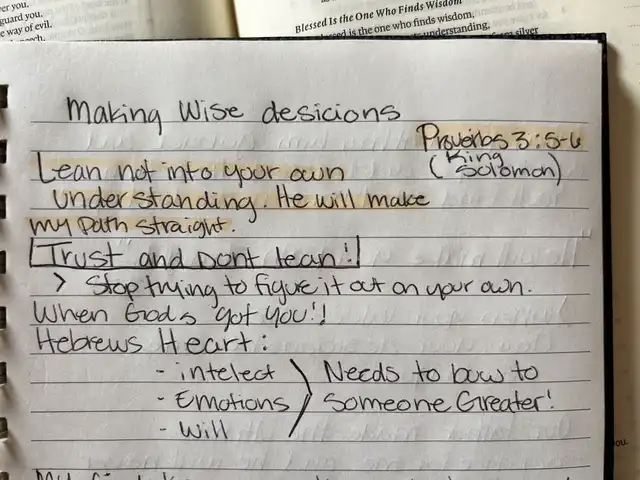 er you.
guard you.
e way of evil.
Blessed Is the One Who Finds Wisdom
is the one who finds wisdom,
understanding,
silver
Making Wise desicions
Proverbs 3:5-6
(King Solomon)
Lean not into your own
understanding. He will make
my path straight.
Trust and Dont lean!
> Stop trying to figure it out on your own.
When God's got you!!
Hebrews Heart:
- intelect
- Emotions
- Will
Needs to bow to
Someone Greater!
you.